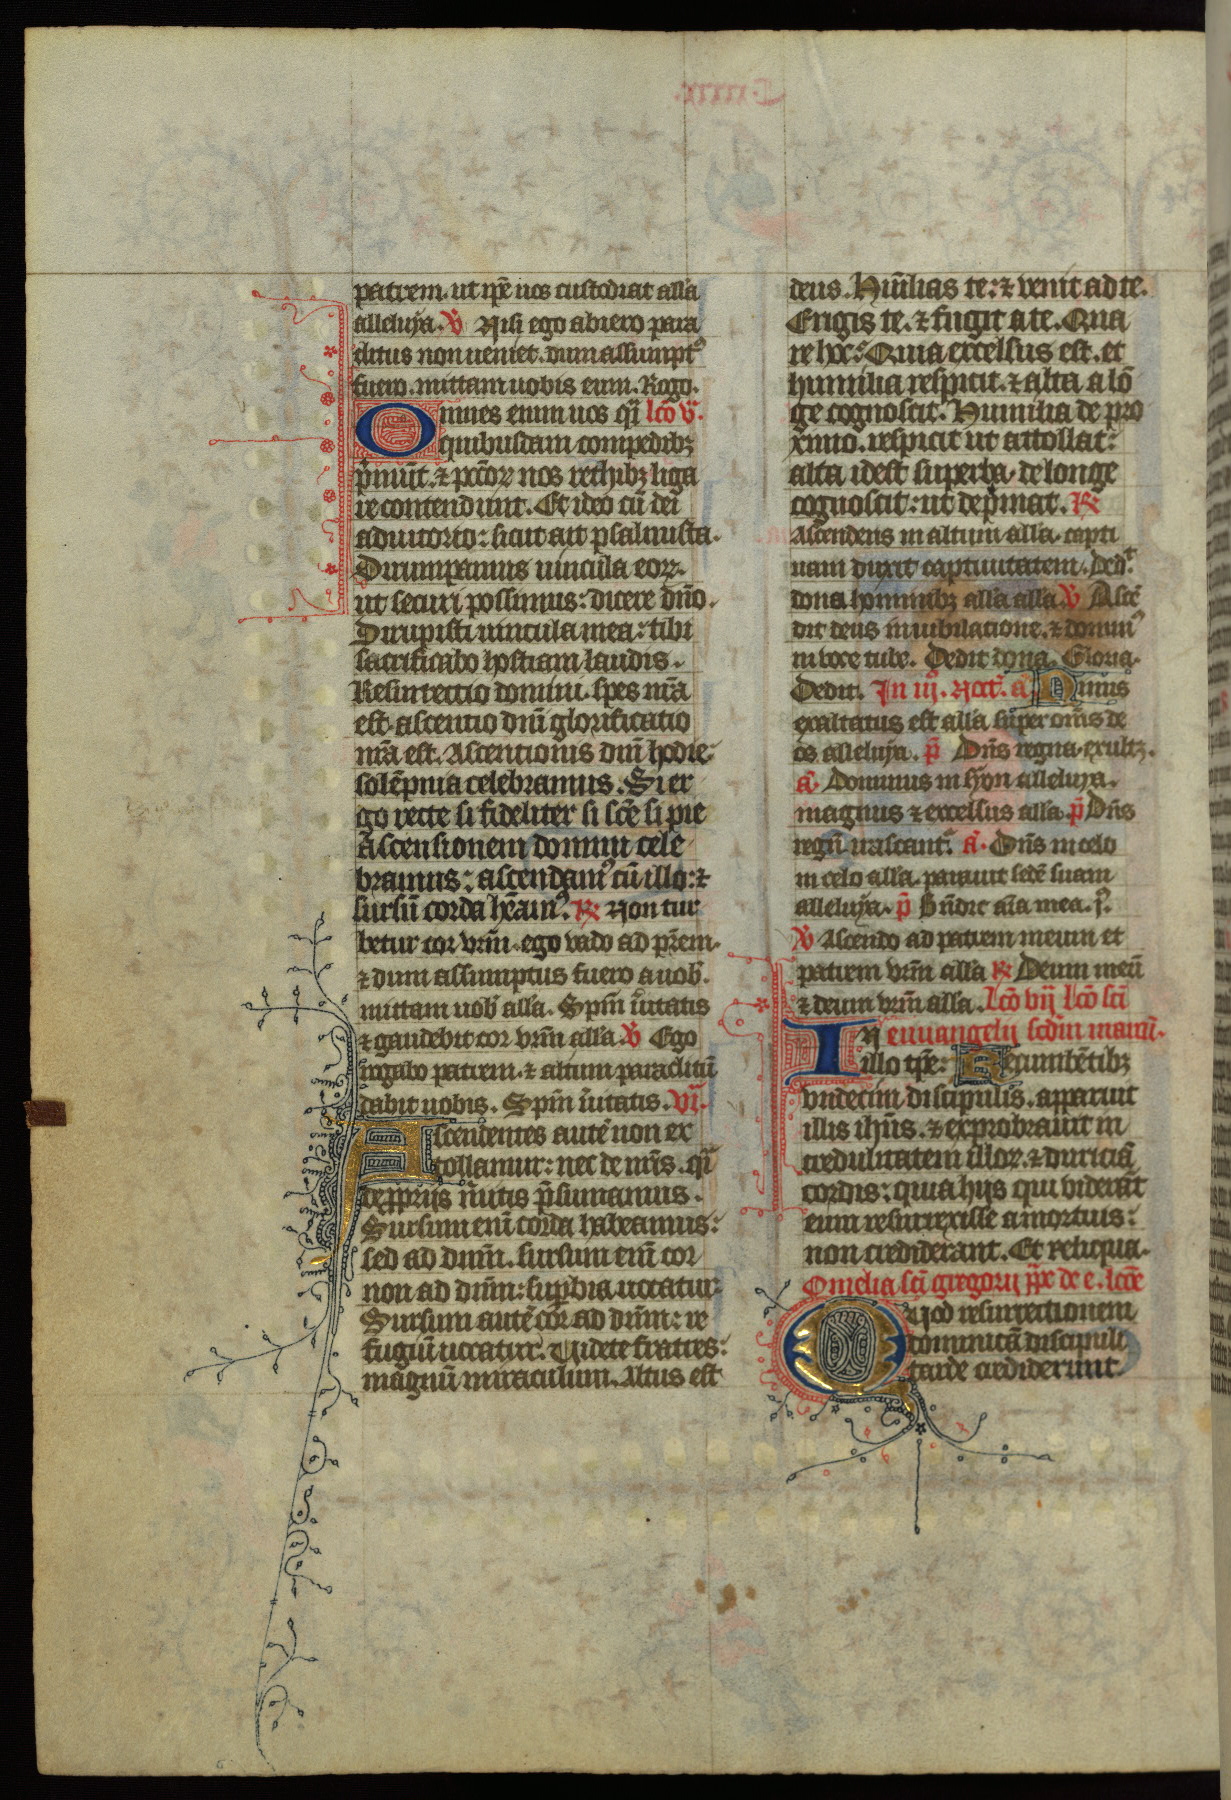 patrem. ut ipẽ uos custodiat alla
alleluya. ℣ Nisi ego abiero para
clitus non ueniet. dum assumptꝰ
fuero. mittam uobis eum. Rogo.
Omnes enim uos qͥ lcõ v.
quibusdam compedibꝫ
p̃mũt. ⁊ pctõꝝ nos rethibꝫ liga
re contendunt. Et ideo cũ dei
adiutorio: sicut ait psalmista.
Dirumpamus uincula eoꝝ.
ut securi possimus: dicere dño.
Dirupisti uincula mea: tibi
sacrificabo hostiam laudis.
Resurrectio domini. spes nr̃a
est. ascentio dnĩ glorificatio
nr̃a est. Ascentionis dnĩ hodie
solẽpnia celebramus. Si er
go recte si fideliter si scẽ si pie
Ascensionem domini cele
bramus: ascendamꝰ cũ illo: ⁊
sursũ corda hẽamꝰ. ℟ Non tur
betur cor vrm̃. ego vado ad pr̃em.
⁊ dum assumptus fuero a uob̃.
mittam uob̃ alla. Spm̃ ũitatis
⁊ gaudebit cor vrm̃ alla. ℣ Ego
rogabo patrem. ⁊ alium paraclitũ
dabit uobis. Spm̃ ũitatis. vj.
Ascendentes autẽ non ex
tollamur: nec de nr̃is. qͥ
de p̱prijs ũutis p̃sumamus.
Sursum enĩ corda habeamus:
sed ad dnm̃. sursum enĩ cor
non ad dnm̃: sup̱bia uocatur.
Sursum autẽ cor ad dnm̃: re
fugiũ uocatur. Uidete fratres:
magnũ miraculum. Altus est
deus. Hũilias te: ⁊ venit ad te.
Erigis te. ⁊ fugit a te. Qua
re hoc: Quia excelsus est. et
humilia respicit. ⁊ alta a lõ
ge cognoscit. Humilia de pro
ximo. respicit ut attollat:
alta idest superba. de longe
cognoscit: ut dep̃mat. ℟
Ascendens in altum alla. capti
uam duxit captiuitatem. Ded̃t
dona hominibꝫ alla alla. ℣ Ascẽ
dit deus in iubilatione. ⁊ dominꝰ
in voce tube. Dedit dona. Gloria.
Dedit. In iij. Noct. a Nimis
exaltatus est alla super oms̃ de
os alleluya. p̃ Dñs regna. exultꝫ.
a. Dominus in syon alleluya.
magnus ⁊ excelsus alla. p̃ Dñs
regñ irascant͛. a. Dñs in celo
in celo alla. parauit sedẽ suam
alleluya. p̃ Bñdic aĩa mea. j.
℣ Ascendo ad patrem meum et
patrem vrm̃ alla ℟ Deum meũ
⁊ deum vrm̃ alla. lcõ vij lcõ scĩ
IN euuangelij scdm̃ marcũ.
illo tp̃e: Recumbẽtibꝫ
vndecim discipulis. apparuit
illis ih̃us. ⁊ exprobrauit in
credulitatem illoꝝ. ⁊ duriciã
cordis: quia hijs qui viderãt
eum resurrexisse a mortuis:
non crediderant. Et reliqua.
Omelia scĩ gregorij pp̃e de e. lccẽ
Quod resurrectionem
dominicã discipuli
tarde crediderunt